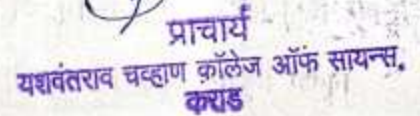 प्राचार्य
यशवंतराव चव्हाण कॉलेज ऑफ सायन्स,
कराड